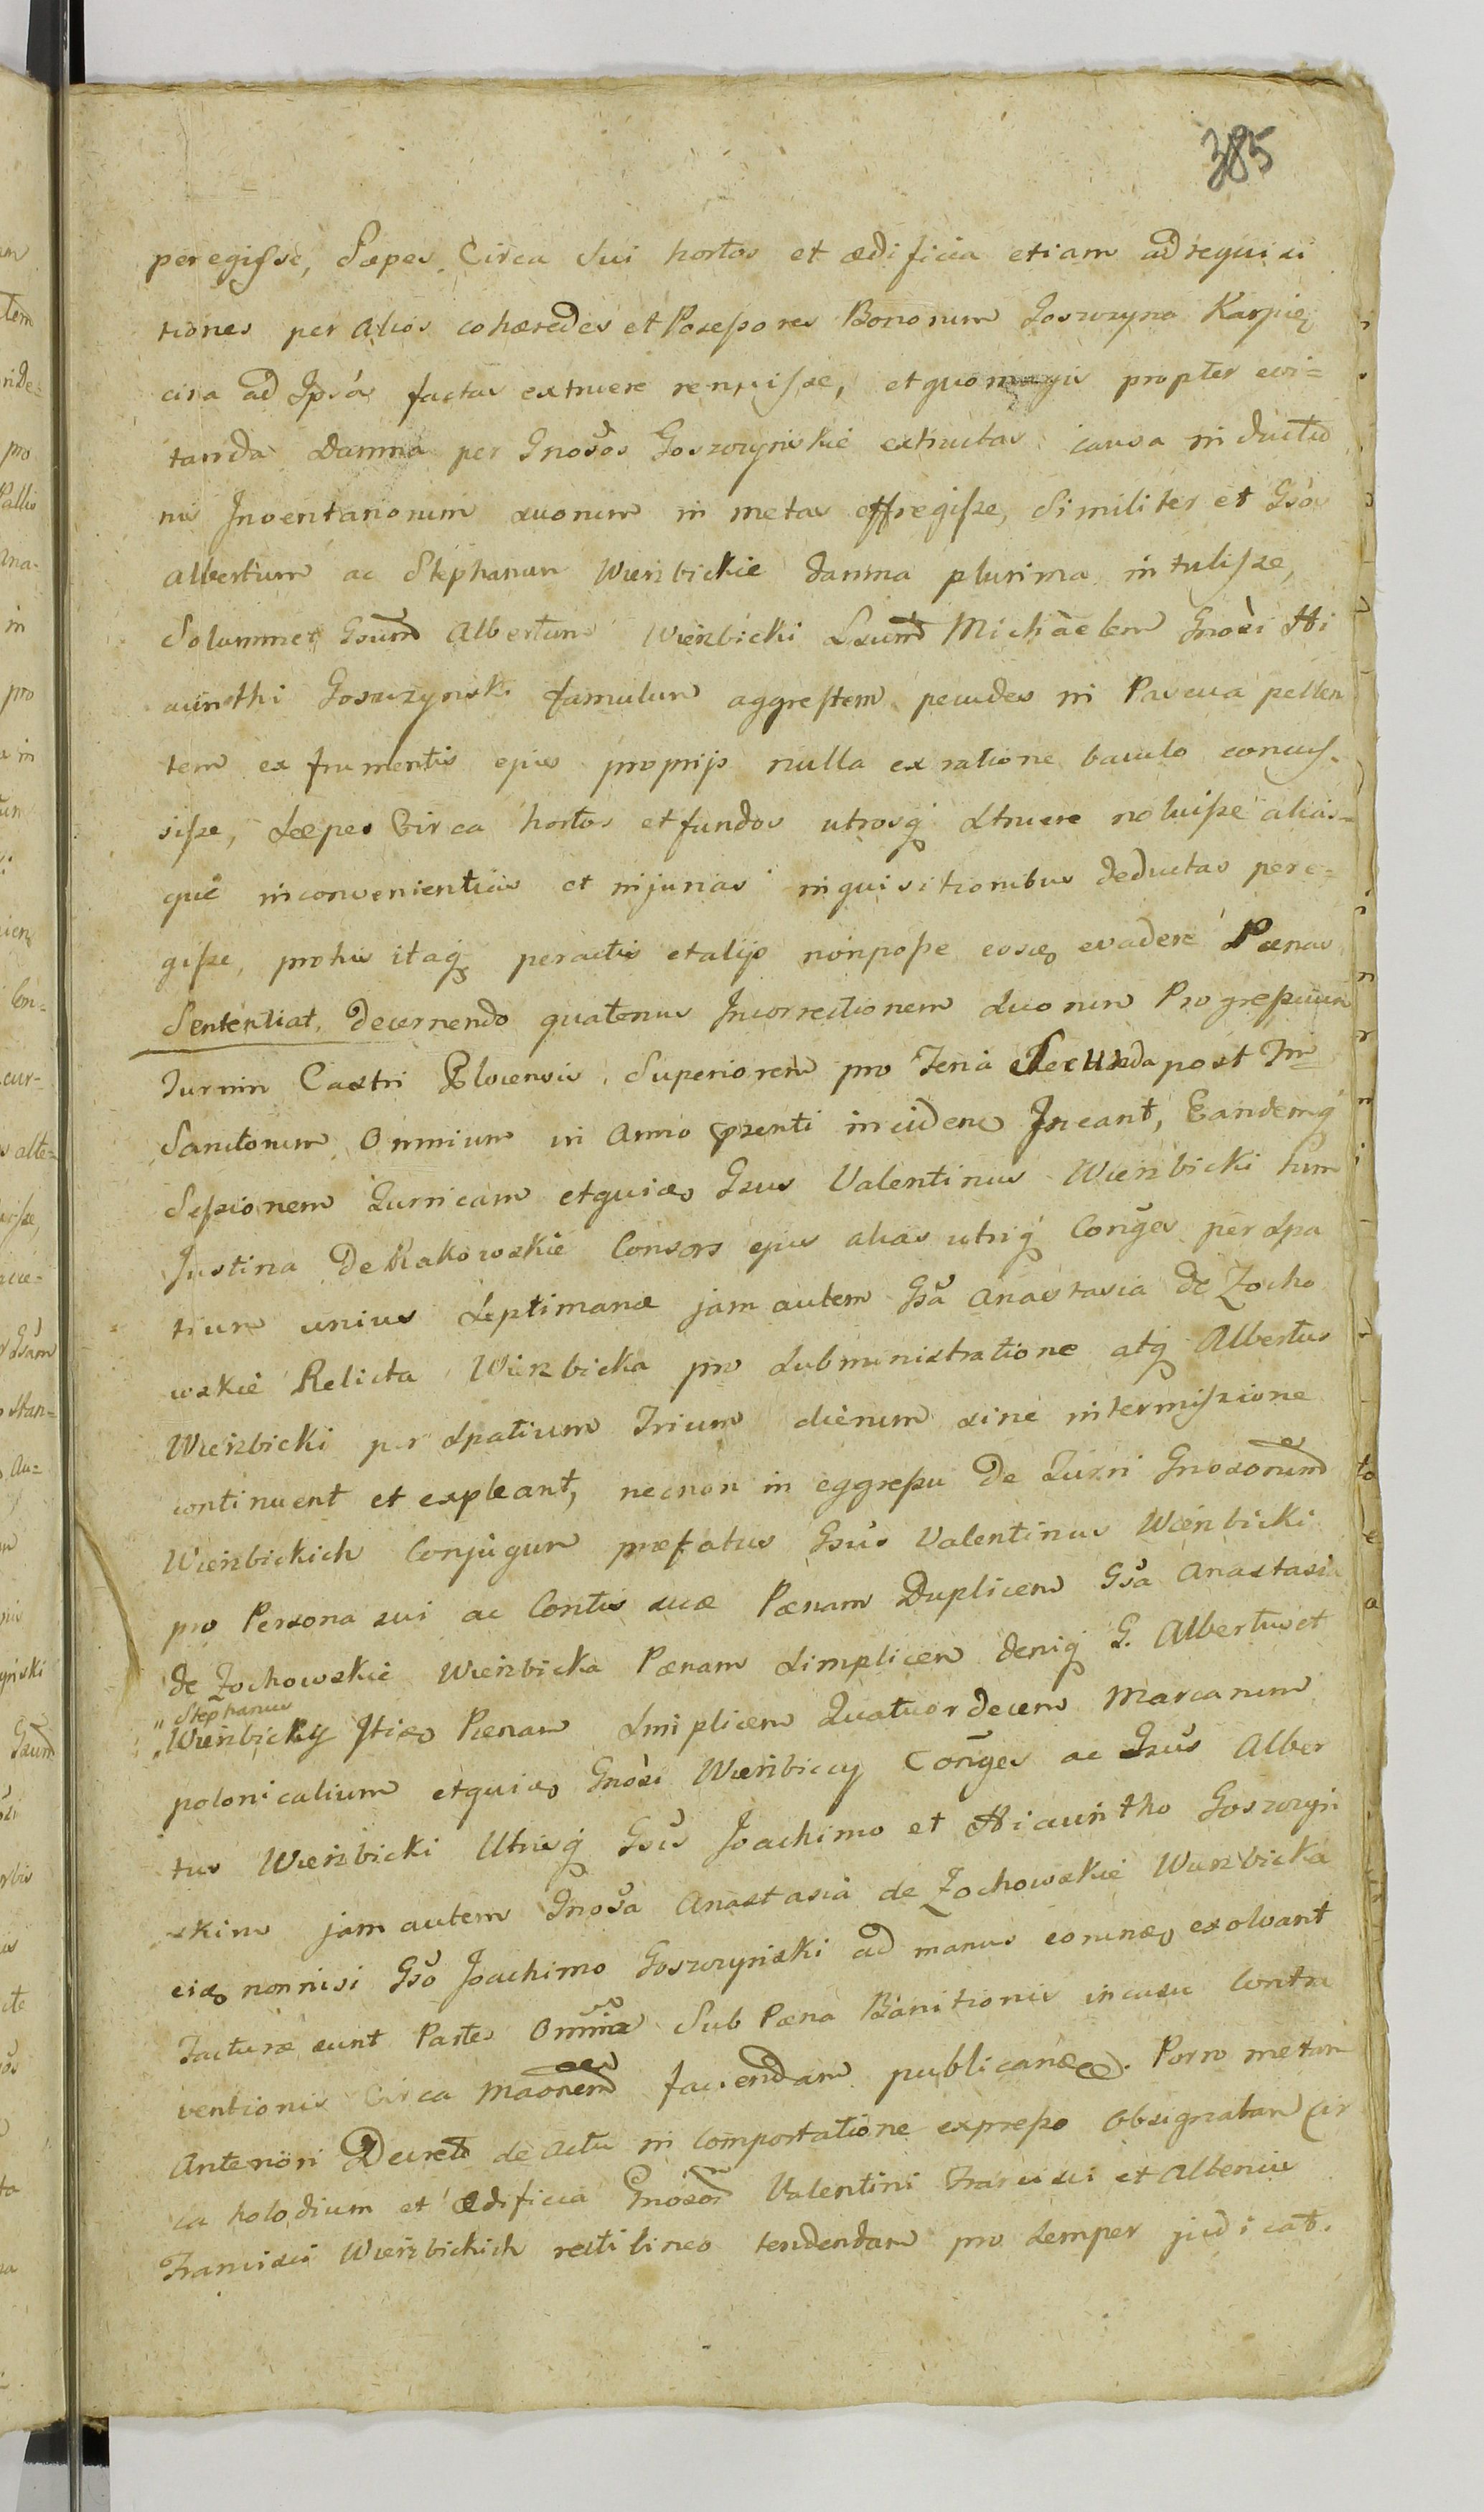 385
peregisse, Sæpes Circa Sui hortos et ædificia etiam ad requisi
tiones per alios cohæredes et Possessores Bonorum Goszczyno Karpię
cina ad Ipsós factas extruere renuisse, et quo magis propter evi=
tanda damna per Gnosos Goszczynskie extructas causa inductio
nis Inventariorum suorum in metas effregisse, Similiter et Gsos
Albertum ac Stephanum Wierzbickie damna plurima intulisse,
Solummet Gsum Albertum Wierzbicki Lsum Michaelem Gnosi Hi
acinthi Goszczynski famulum aggrestem pecudes in Pascua pellen
tem ex frumentis ejus proprijs nulla ex ratione baculo concus=
sisse, Sæpes Circa hortos et fundos utrosq struere noluisse alias=
que inconvenientias et injurias inquisitionibus deductas pere=
gisse, pro his itaq peractis et alijs non posse eosdem evadere Pœnas
Sententiat, Decernendo quatenus Incorrectionem Suorum Progressuum
Turrim Castri Plocensis Superiorem pro Feria Secunda post F=
Sanctorum Omnium in Anno præsenti inciden Ineant, Eandemq
Sessionem Turricam et quidem Gsus Valentinus Wierzbicki tum
Justina De Rakowskie Consors ejus alias utriq Conges per spa
tium unius Septimanæ jam autem Gsa Anastasia de Zocho
wskie Relicta Wierzbicka pro subministratione atq Albertus
Wierzbicki per spatium Trium dierum sine intermissione
continuent et expleant, necnon in eggressu de Turri Gnosorum
Wierzbickich Conjugum præfatus Gsus Valentinus Wierzbicki
pro Persona sui ac Contis suæ Pœnam Duplicem Gsa Anastasia
de Zochowskie Wierzbicka Pœnam Simplicem deniq G. Albertus et
" Stephanus
" Wierzbicky Itidem Pœnam Simplicem Quatuordecem Marcarum
polonicalium et quidem Gnosi Wierzbiccy Conges ac Gsus Alber
tus Wierzbicki Utrisq Gsis Joachimo et Hiacintho Goszczyn
skim jam autem Gnosa Anastasia de Zochowskie Wierzbicka
eidem nonnisi Gso Joachimo Goszczynski ad manus eorundem exolvant
Facturæ sunt Partes Omnia Sub Pœna Banitionis in casu Contra
ventionis Circa Maonem faciendam publicandæ. Porro metam
Anteriori Decreto de Actu in Comportatione expresso Obsignatam Cir
ca holodium et Ædificia Gnosor Valentini Francisci et Albenis
Francisci Wierzbickich recti lineo tendendam pro semper judicat.